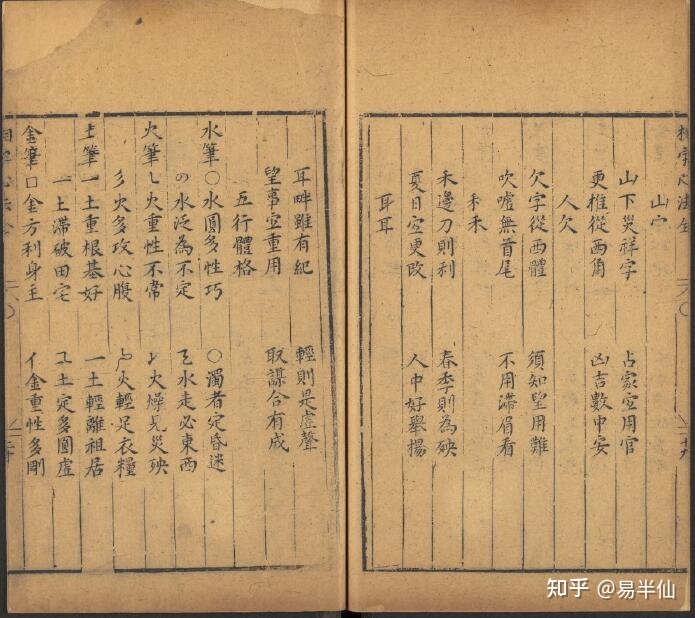 山
山下災祥字　占家宜用官
更推從西角　凶吉數中安
人欠
欠字從西體　須知望用難
吹噓無首尾　不用滯眉看
禾
禾邊刀則利　春季則為殃
夏日宜更改　人中好舉揚
耳耳
十九
耳畔雖有紀　輕則是虛聲
望事宜重用　取謀合有成
五行體格
水筆○水圓多性巧　○濁者定昏迷
水泛為不定　水走必東西
火筆乚火重性不常　火燥見災殃
火多攻心腹　火輕足衣糧
土筆一土重根基好　一土輕離祖居
一土滯破田宅　土定多圓虛
金筆口金方利身主　亻金重性多剛
知乎 @易半仙